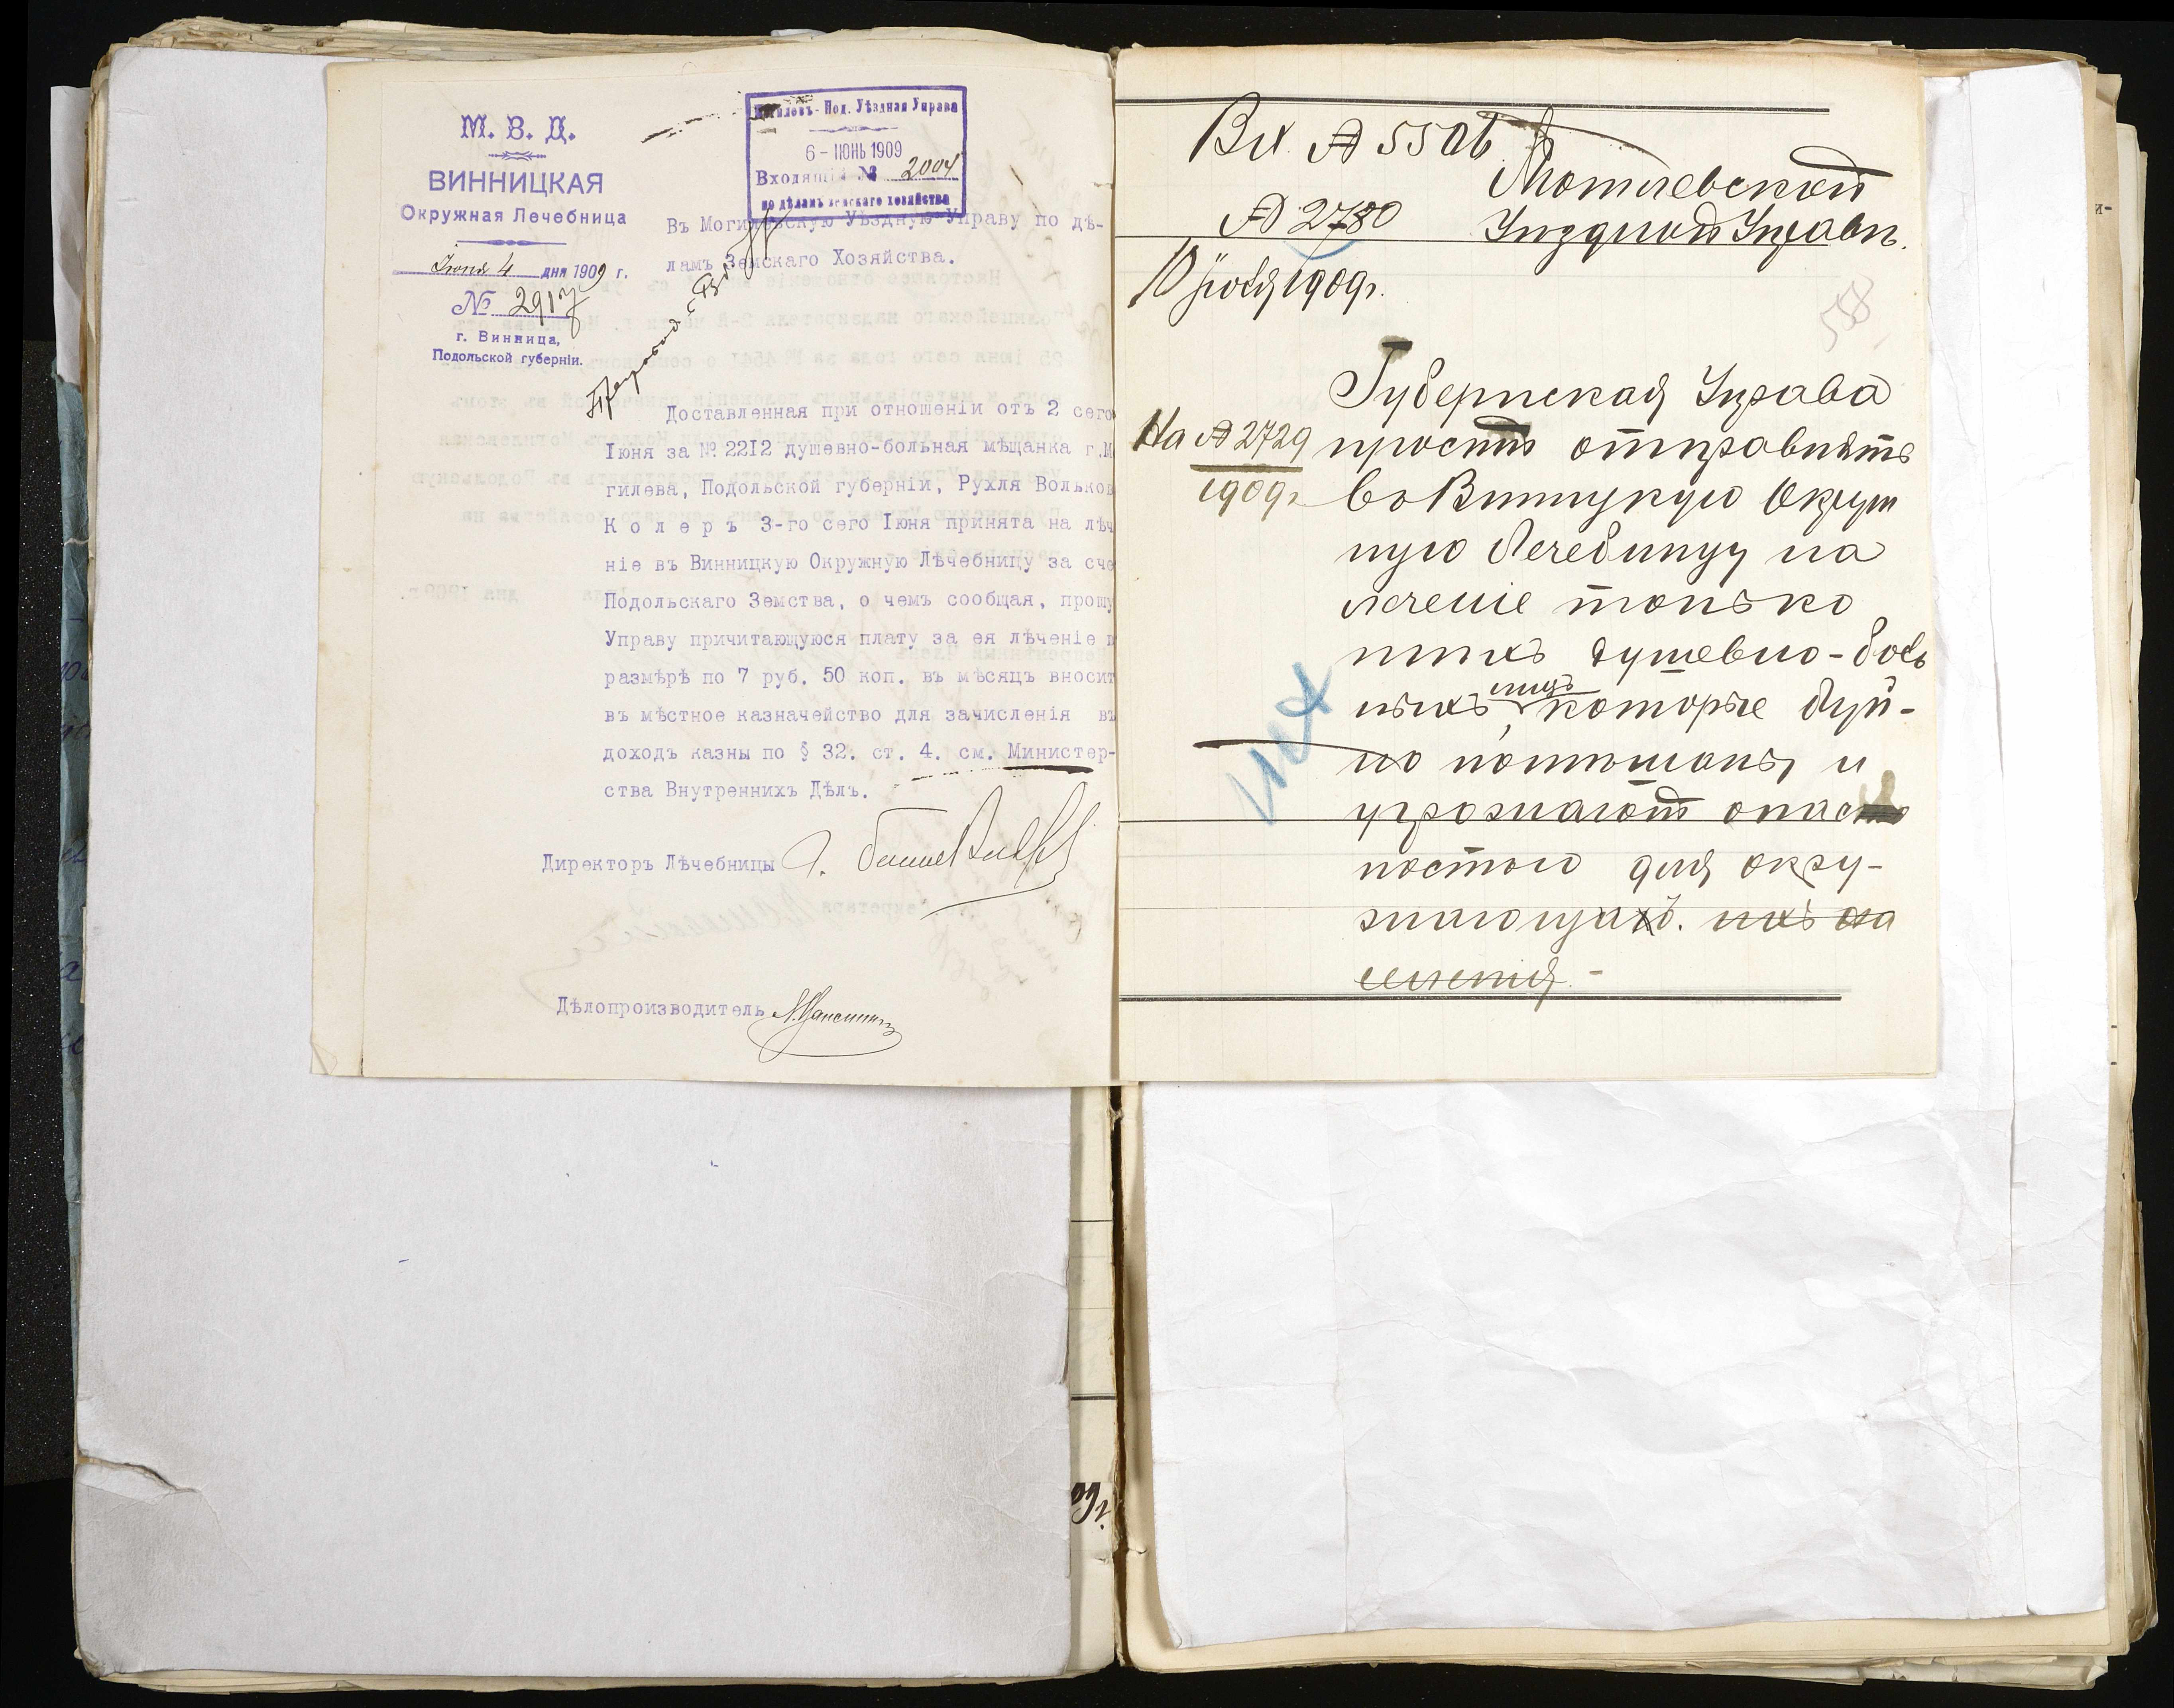 М. В. Д.
ВИННИЦКАЯ
Окружная Лечебница
Іюня 4 дня 1909 г.
№ 2917
г. Винница,
Подольской губерніи.
Могилевъ-Под. Уѣздная Управа
6 - ІЮНЬ 1909
Входящій № 2004
по дѣламъ земскаго хозяйства
Въ Могилевскую Уѣздную Управу по дѣ-
ламъ Земскаго Хозяйства.
Доставленная при отношеніи отъ 2 сего
Іюня за № 2212 душевно-больная мѣщанка г.М
гилева, Подольской губерніи, Рухля Вольков
Колеръ 3-го сего Іюня принята на лѣч
ніе въ Винницкую Окружную Лѣчебницу за сче
Подольскаго Земства, о чемъ сообщая, прошу
Управу причитающуюся плату за ея лѣченіе в
размѣрѣ по 7 руб. 50 коп. въ мѣсяцъ вносит
въ мѣстное казначейство для зачисленія въ
доходъ казны по § 32. ст. 4. см. Министер-
ства Внутреннихъ Дѣлъ.
Директоръ Лѣчебницы
Дѣлопроизводитель
Вх. № 5506
Могилевской
№ 2780 Уѣздной Управѣ.
10 Іюня 1909г.
588
Губернская Управа
На № 2729 проситъ отправлять
1909г въ Винницкую Окруж
ную Лечебницу на
леченіе только
тѣхъ душевно-боль
ныхъ лицъ, которые буй-
но помѣшаны и
угрожаютъ опас
ностью для окру-
жающихъ. ихъ на
селенія -
09г.